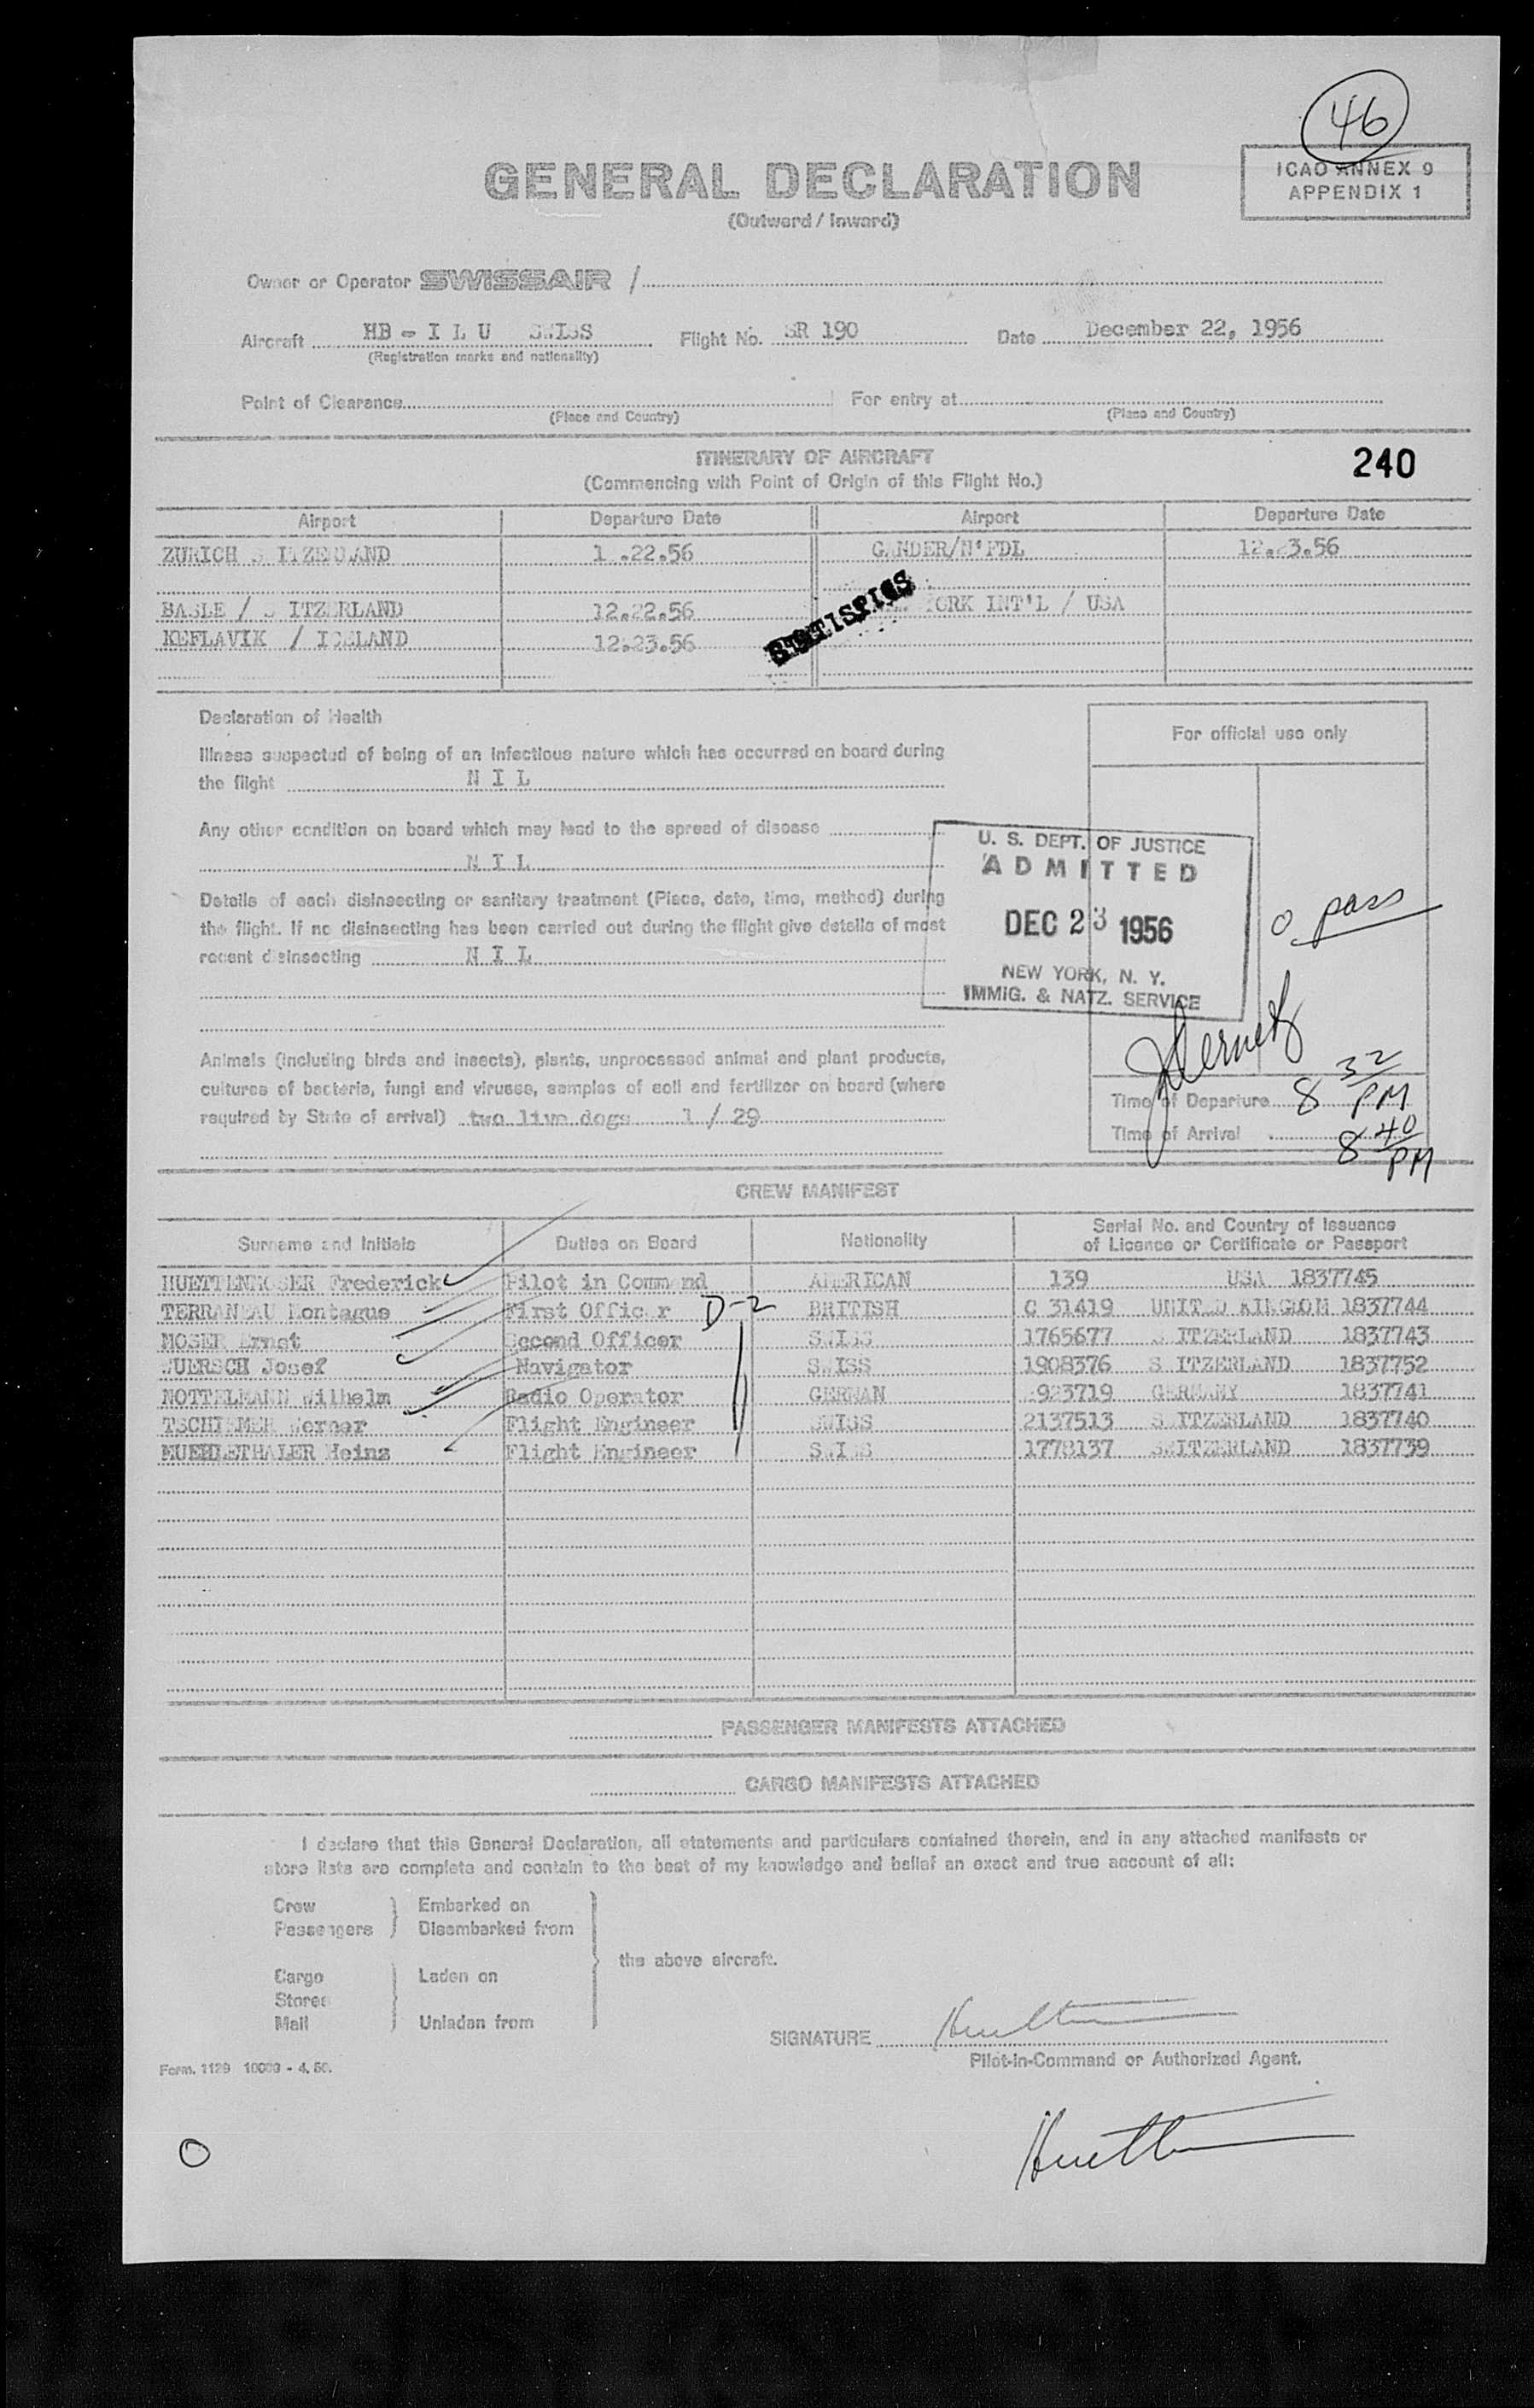 46
GENERAL DECLARATION
(Outward / Inward)
ICAO ANNEX 9
APPENDIX 1
Owner or Operator SWISSAIR /
Aircraft HB - I L U SWISS Flight No. SR 190 Date December 22, 1956
(Registration marks and nationality)
Point of Clearance For entry at
(Place and Country) (Place and Country)
ITINERARY OF AIRCRAFT
240
(Commencing with Point of Origin of this Flight No.)
Airport Departure Date Airport Departure Date
ZURICH S ITZERLAND 1 .22.56 GANDER/N'FDL 12.23.56
BASLE / S ITZERLAND 12.22.56 YORK INT'L / USA
KEFLAVIK / ICELAND 12.23.56
Declaration of Health
For official use only
Illness suspected of being of an infectious nature which has occurred on board during
the flight N I L
Any other condition on board which may lead to the spread of disease
N I L
U. S. DEPT. OF JUSTICE
ADMITTED
DEC 23 1956
NEW YORK, N. Y.
IMMIG. & NATZ. SERVICE
0 pass
Details of each disinsecting or sanitary treatment (Place, date, time, method) during
the flight. If no disinsecting has been carried out during the flight give details of most
recent disinsecting N I L
Animals (including birds and insects), plants, unprocessed animal and plant products,
cultures of bacteria, fungi and viruses, samples of soil and fertilizer on board (where
required by State of arrival) two live dogs 1 / 29
Time of Departure 8 32 PM
Time of Arrival 8 40 PM
CREW MANIFEST
Surname and Initials Duties on Board Nationality Serial No. and Country of Issuance
of Licence or Certificate or Passport
HUETTENMOSER Frederick Pilot in Command AMERICAN 139 USA 1837745
TERRANEAU Montague First Officer D-2 BRITISH C 31419 UNITED KINGDOM 1837744
MOSER Ernst Second Officer SWISS 1765677 S ITZERLAND 1837743
WUERSCH Josef Navigator SWISS 1908376 S ITZERLAND 1837752
NOTTELMANN Wilhelm Radio Operator GERMAN 923719 GERMANY 1837741
Werner Flight Engineer SWISS 2137513 S ITZERLAND 1837740
MUEHLETHALER Heinz Flight Engineer SWISS 1778137 SWITZERLAND 1837739
PASSENGER MANIFESTS ATTACHED
CARGO MANIFESTS ATTACHED
I declare that this General Declaration, all statements and particulars contained therein, and in any attached manifests or
store lists are complete and contain to the best of my knowledge and belief an exact and true account of all:
Crew Embarked on
Passengers Disembarked from
the above aircraft.
Cargo Laden on
Stores
Mail Unladen from
SIGNATURE
Pilot-in-Command or Authorized Agent.
Form. 1129 10000 - 4. 56.
O